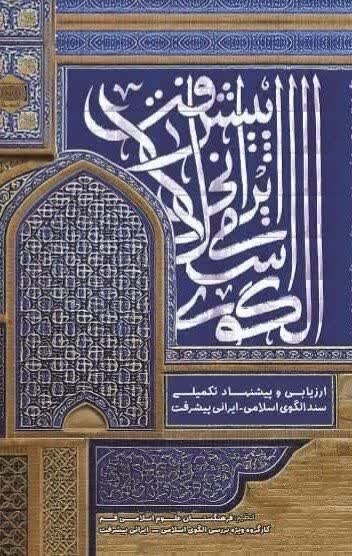 الگوی اسلامی ایرانی پیشرفت
ارزیابی و پیشنهاد تکمیلی
سند الگوی اسلامی - ایرانی پیشرفت
تنظیم: فرهنگستان علوم اسلامی قم
کارگروه ویژه بررسی الگوی اسلامی - ایرانی پیشرفت